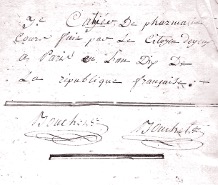 3e Cahier De pharmacie
Cours fait par Le Citoyen Deyeux
a Paris en L'an Dix De
La republique française.
Bouchet Bouchet